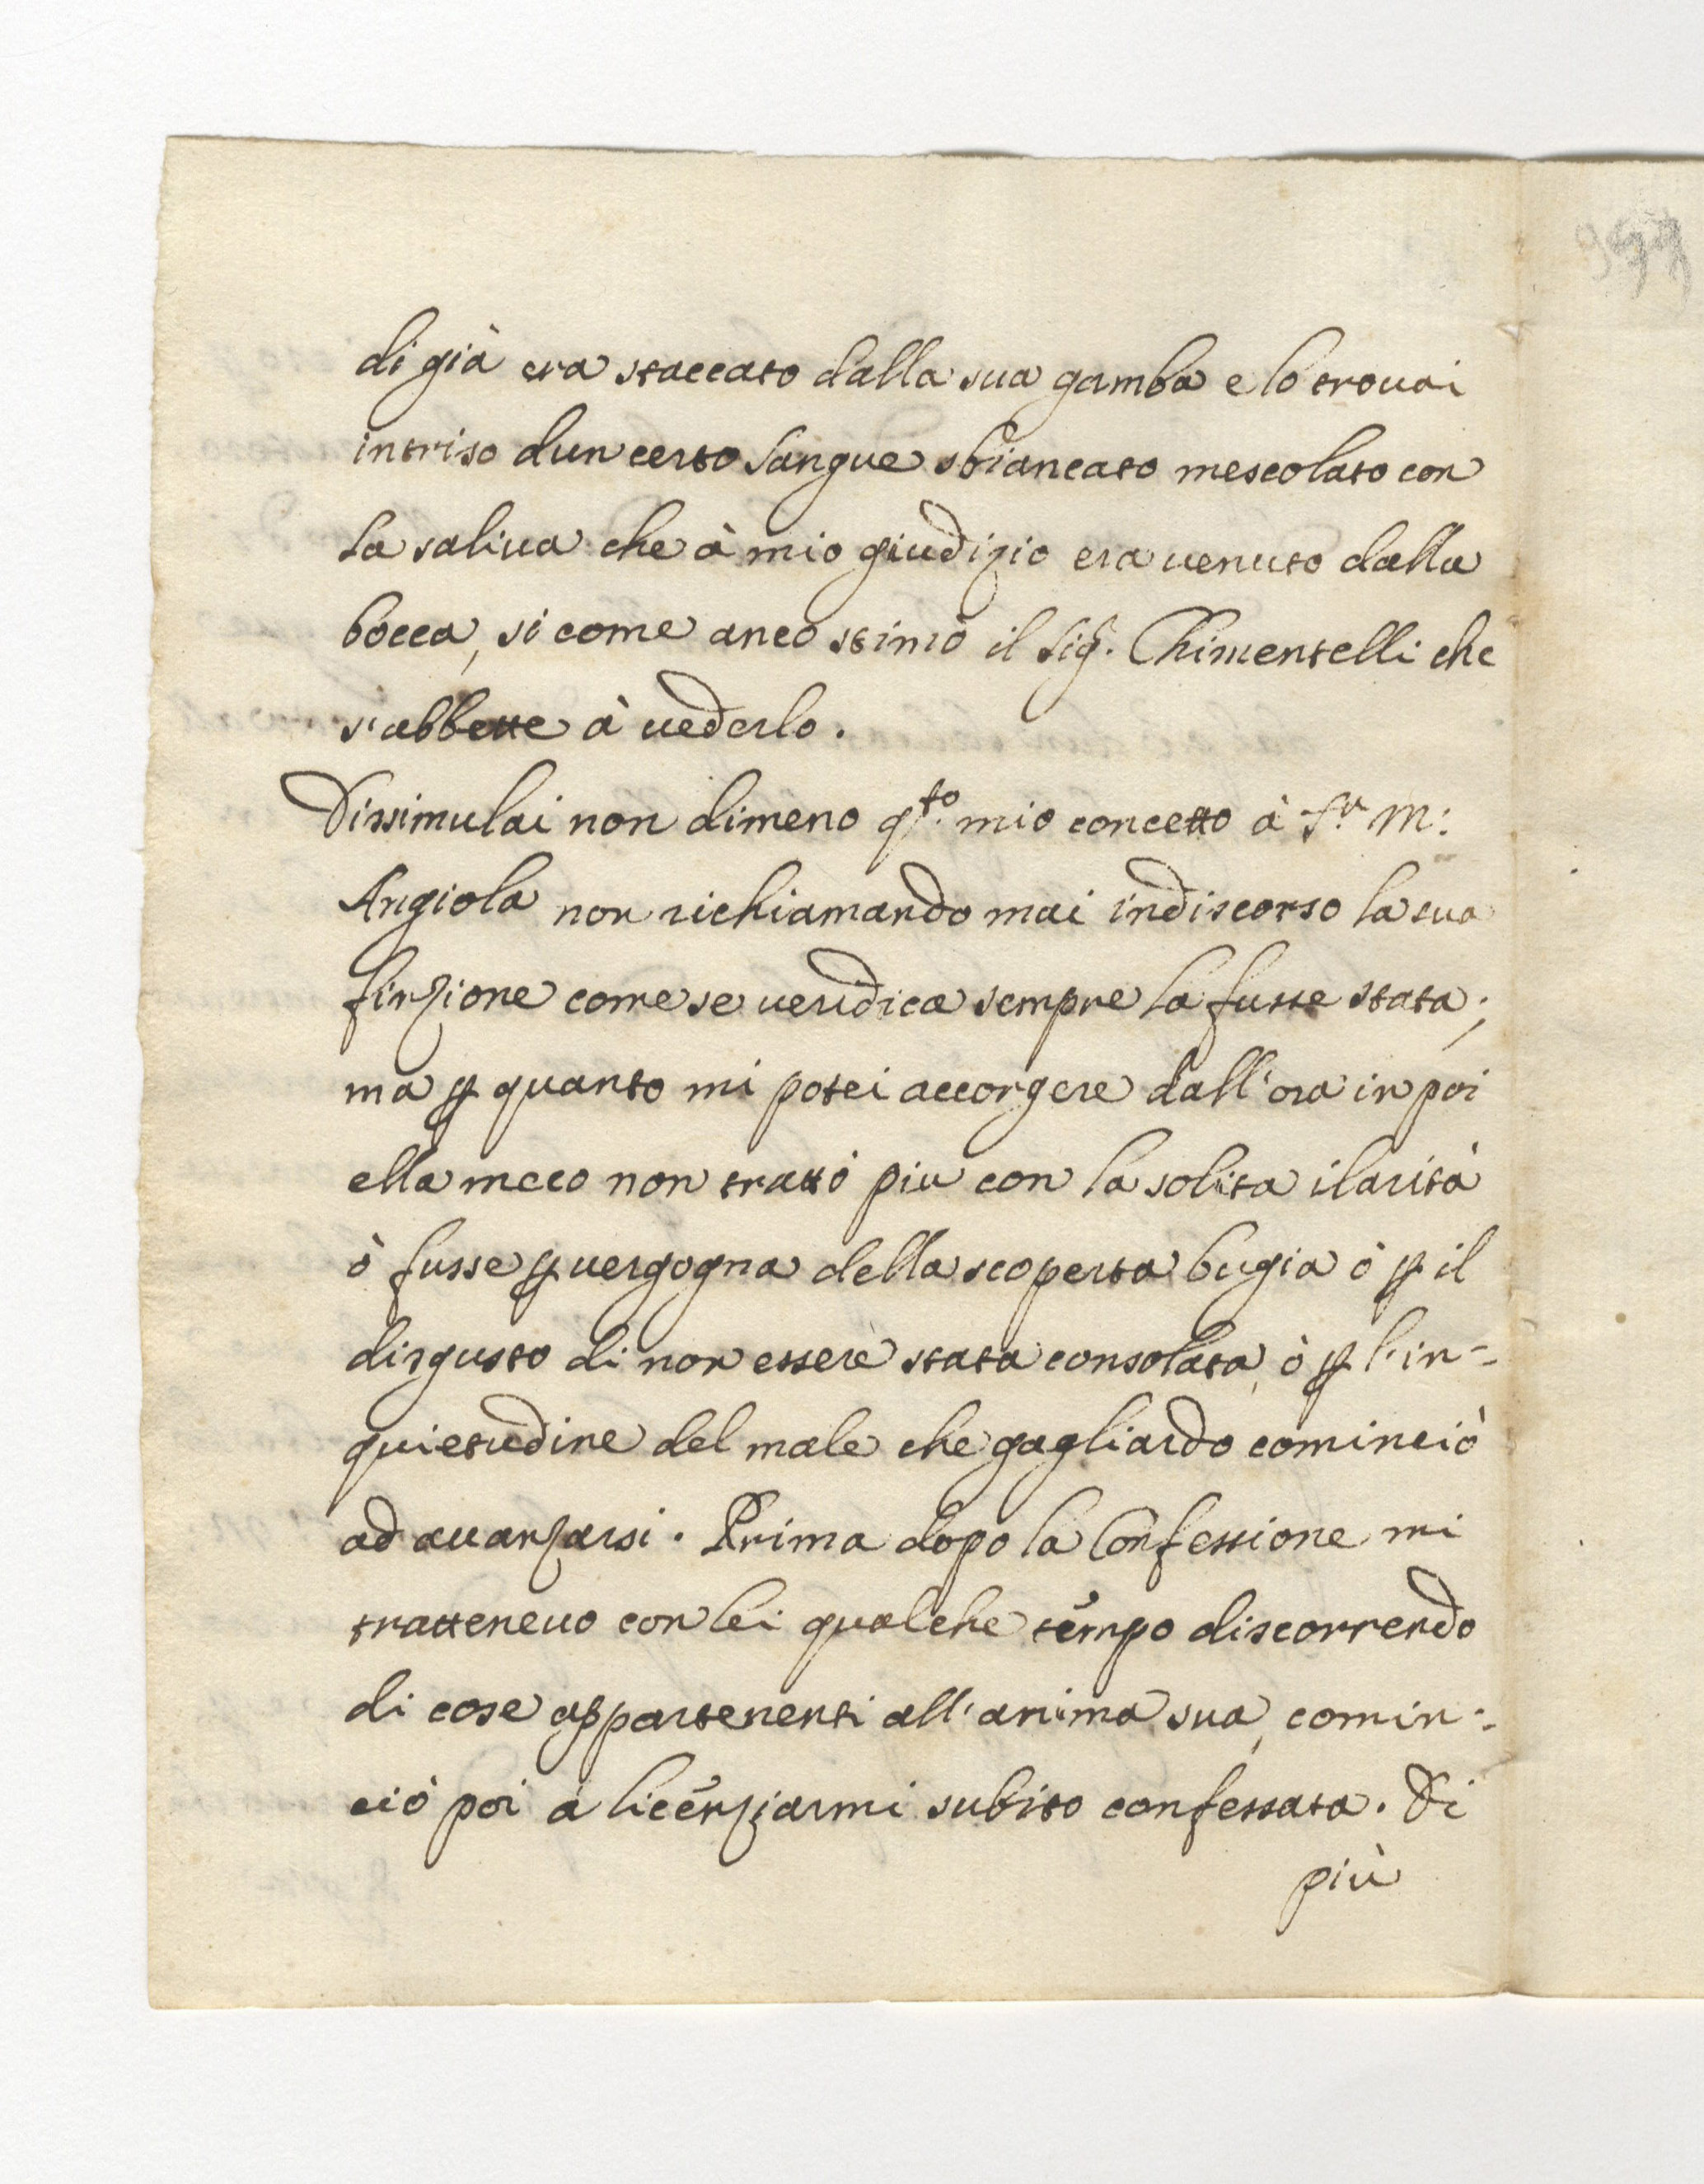 di già era staccato dalla sua gamba e lo trouai
intriso dun certo sangue sbiancato mescolato con
la saliua che à mio giudizio era uenuto dalla
bocca, si come anco stimò il Sig. Chimentelli che
s'abbette à uederlo.
Dissimulai non dimeno q.to mio concetto à S.r M:
Angiola non richiamando mai indiscorso la sua
finzione come se ueridica sempre la fusse stata;
ma ꝑ quanto mi potei accorgere dall'ora in poi
ella meco non trattò piu con la solita ilarità
ò fusse ꝑ uergogna della scoperta bugia ò ꝑ il
disgusto di non essere stata consolata, ò ꝑ l'in=
quietudine del male che gagliardo cominciò
ad auanzarsi. Prima dopo la Confessione mi
tratteneuo con lei qualche tempo discorrendo
di cose appartenenti all'anima sua, comin=
ciò poi à licenziarmi subito confessata. Di
più